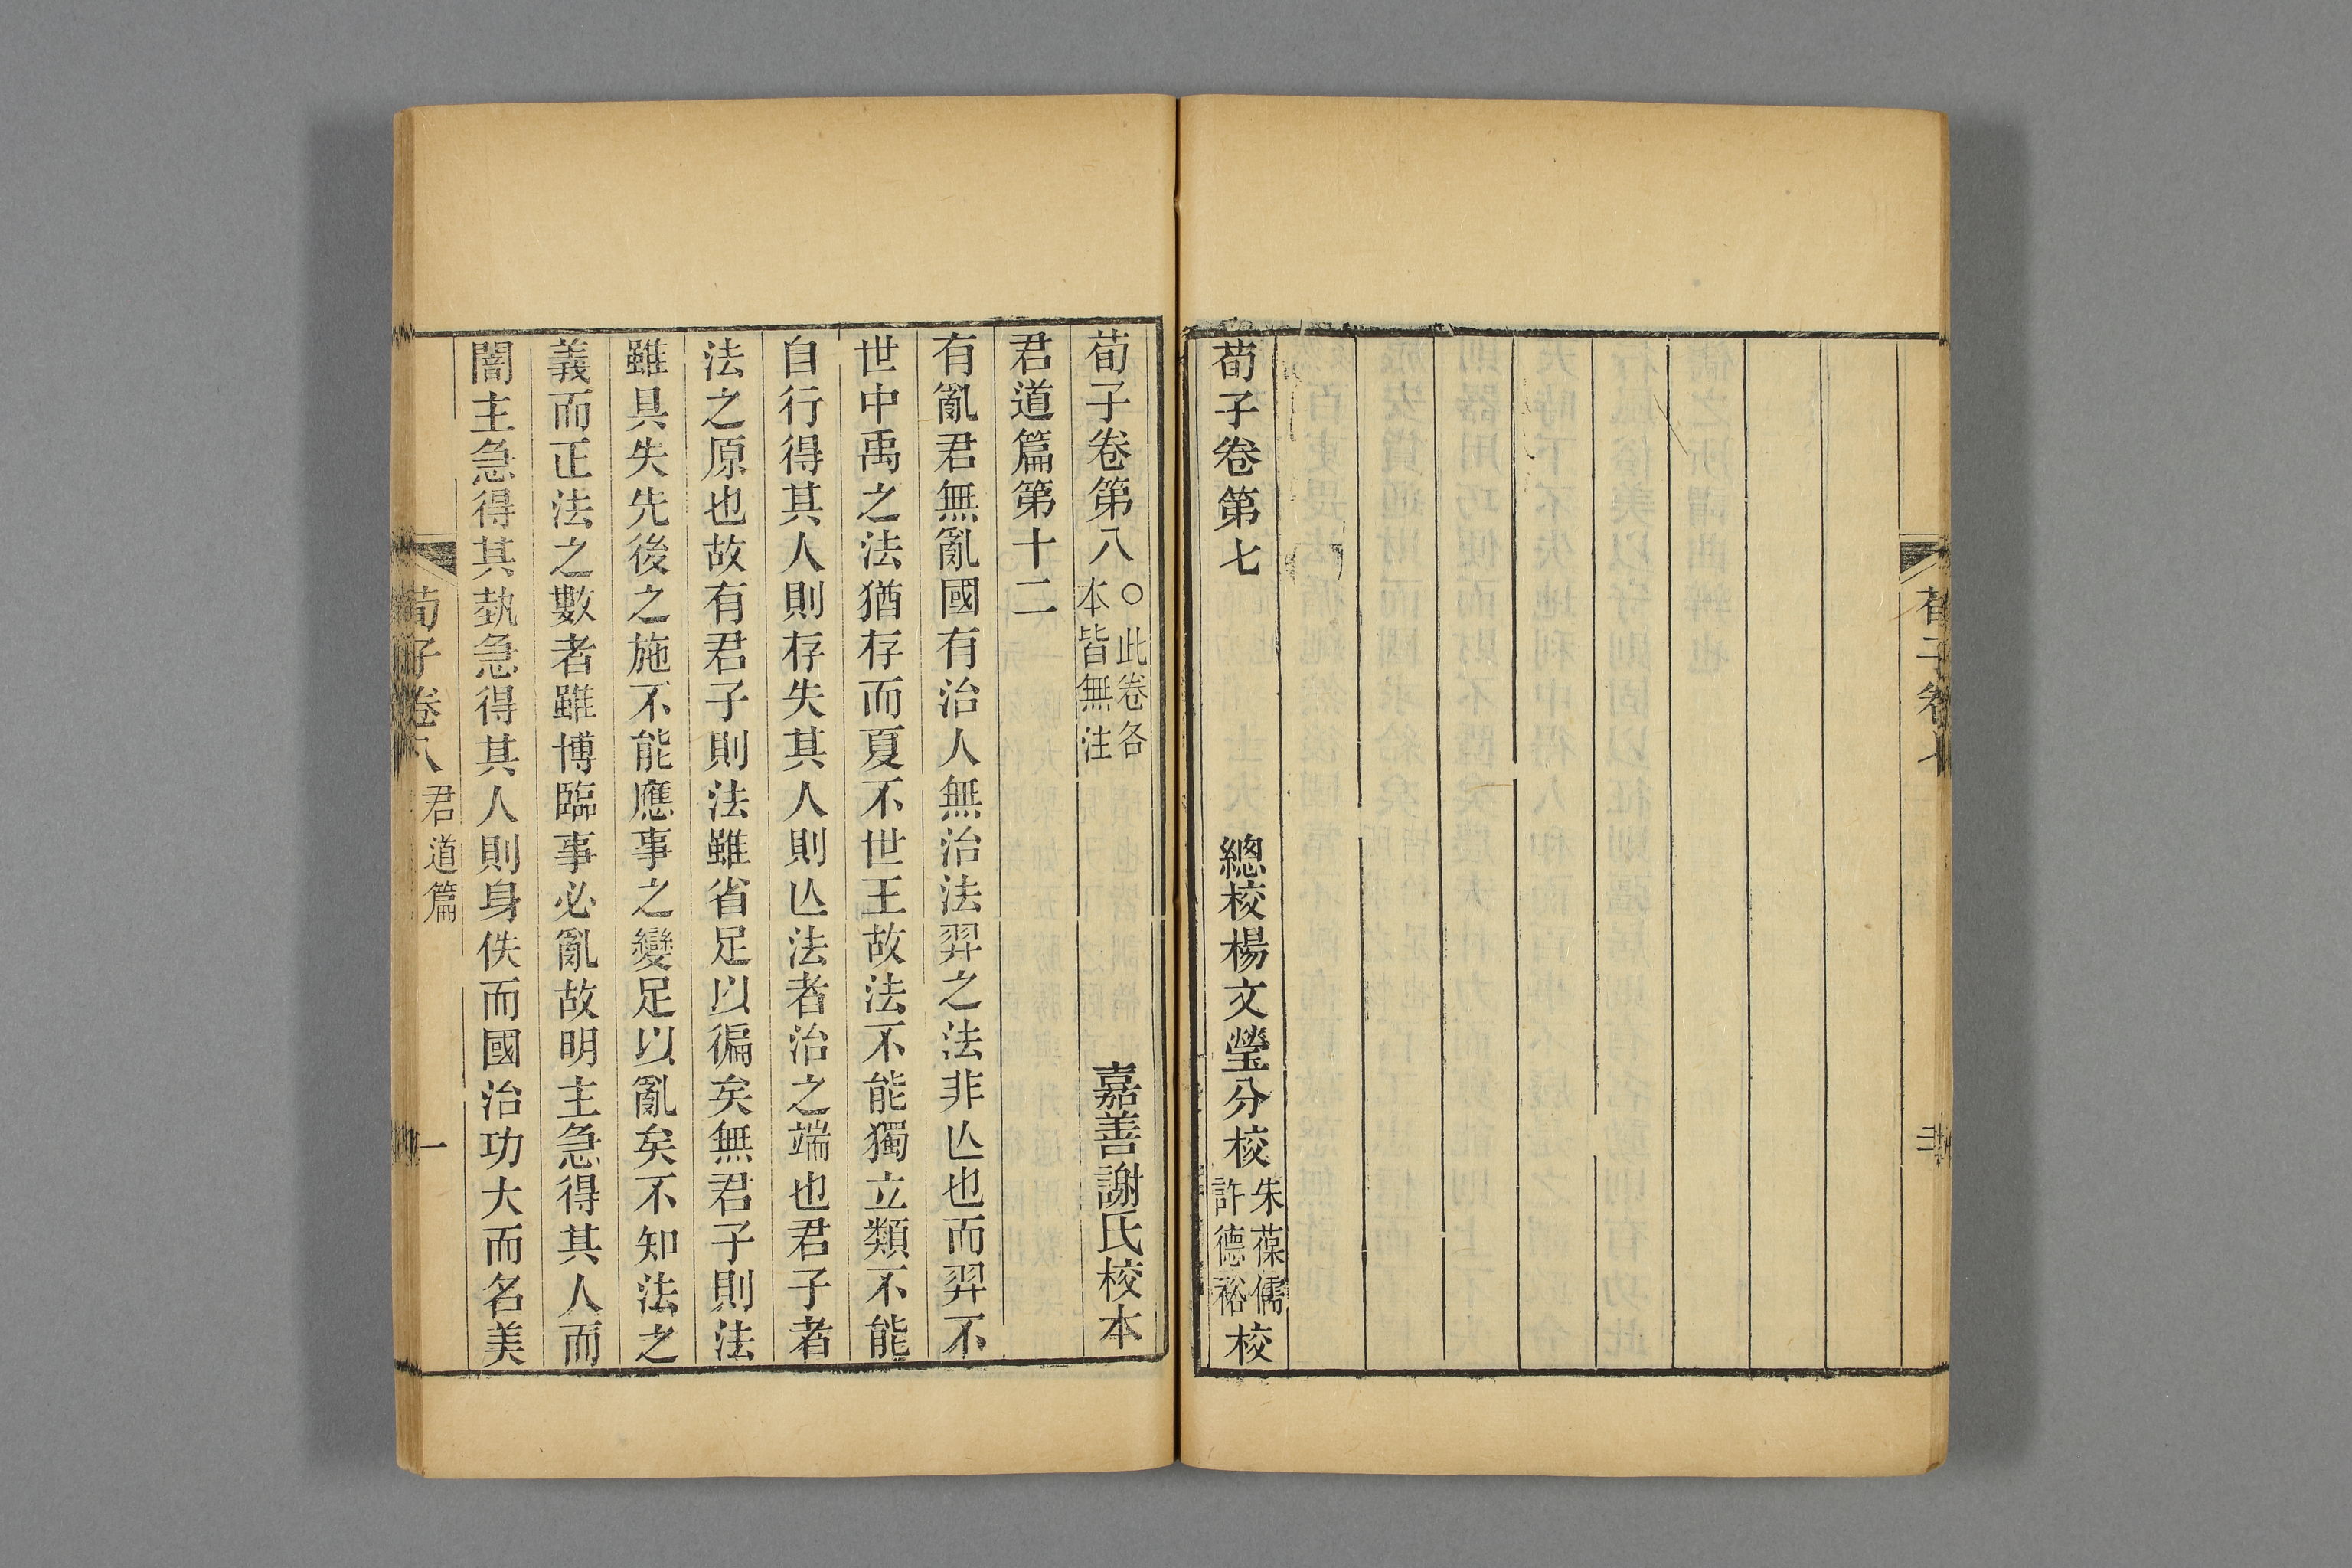 荀子卷七
荀子卷第七 總校楊文瑩分校朱葆儒許德裕校
荀子卷第八 ○此卷各本皆無注 嘉善謝氏校本
君道篇第十二
有亂君無亂國有治人無治法羿之法非亾也而羿不
世中禹之法猶存而夏不世王故法不能獨立類不能
自行得其人則存失其人則亾法者治之端也君子者
法之原也故有君子則法雖省足以徧矣無君子則法
雖具失先後之施不能應事之變足以亂矣不知法之
義而正法之數者雖博臨事必亂故明主急得其人而
闇主急得其埶急得其人則身佚而國治功大而名美
荀子卷八 君道篇 一